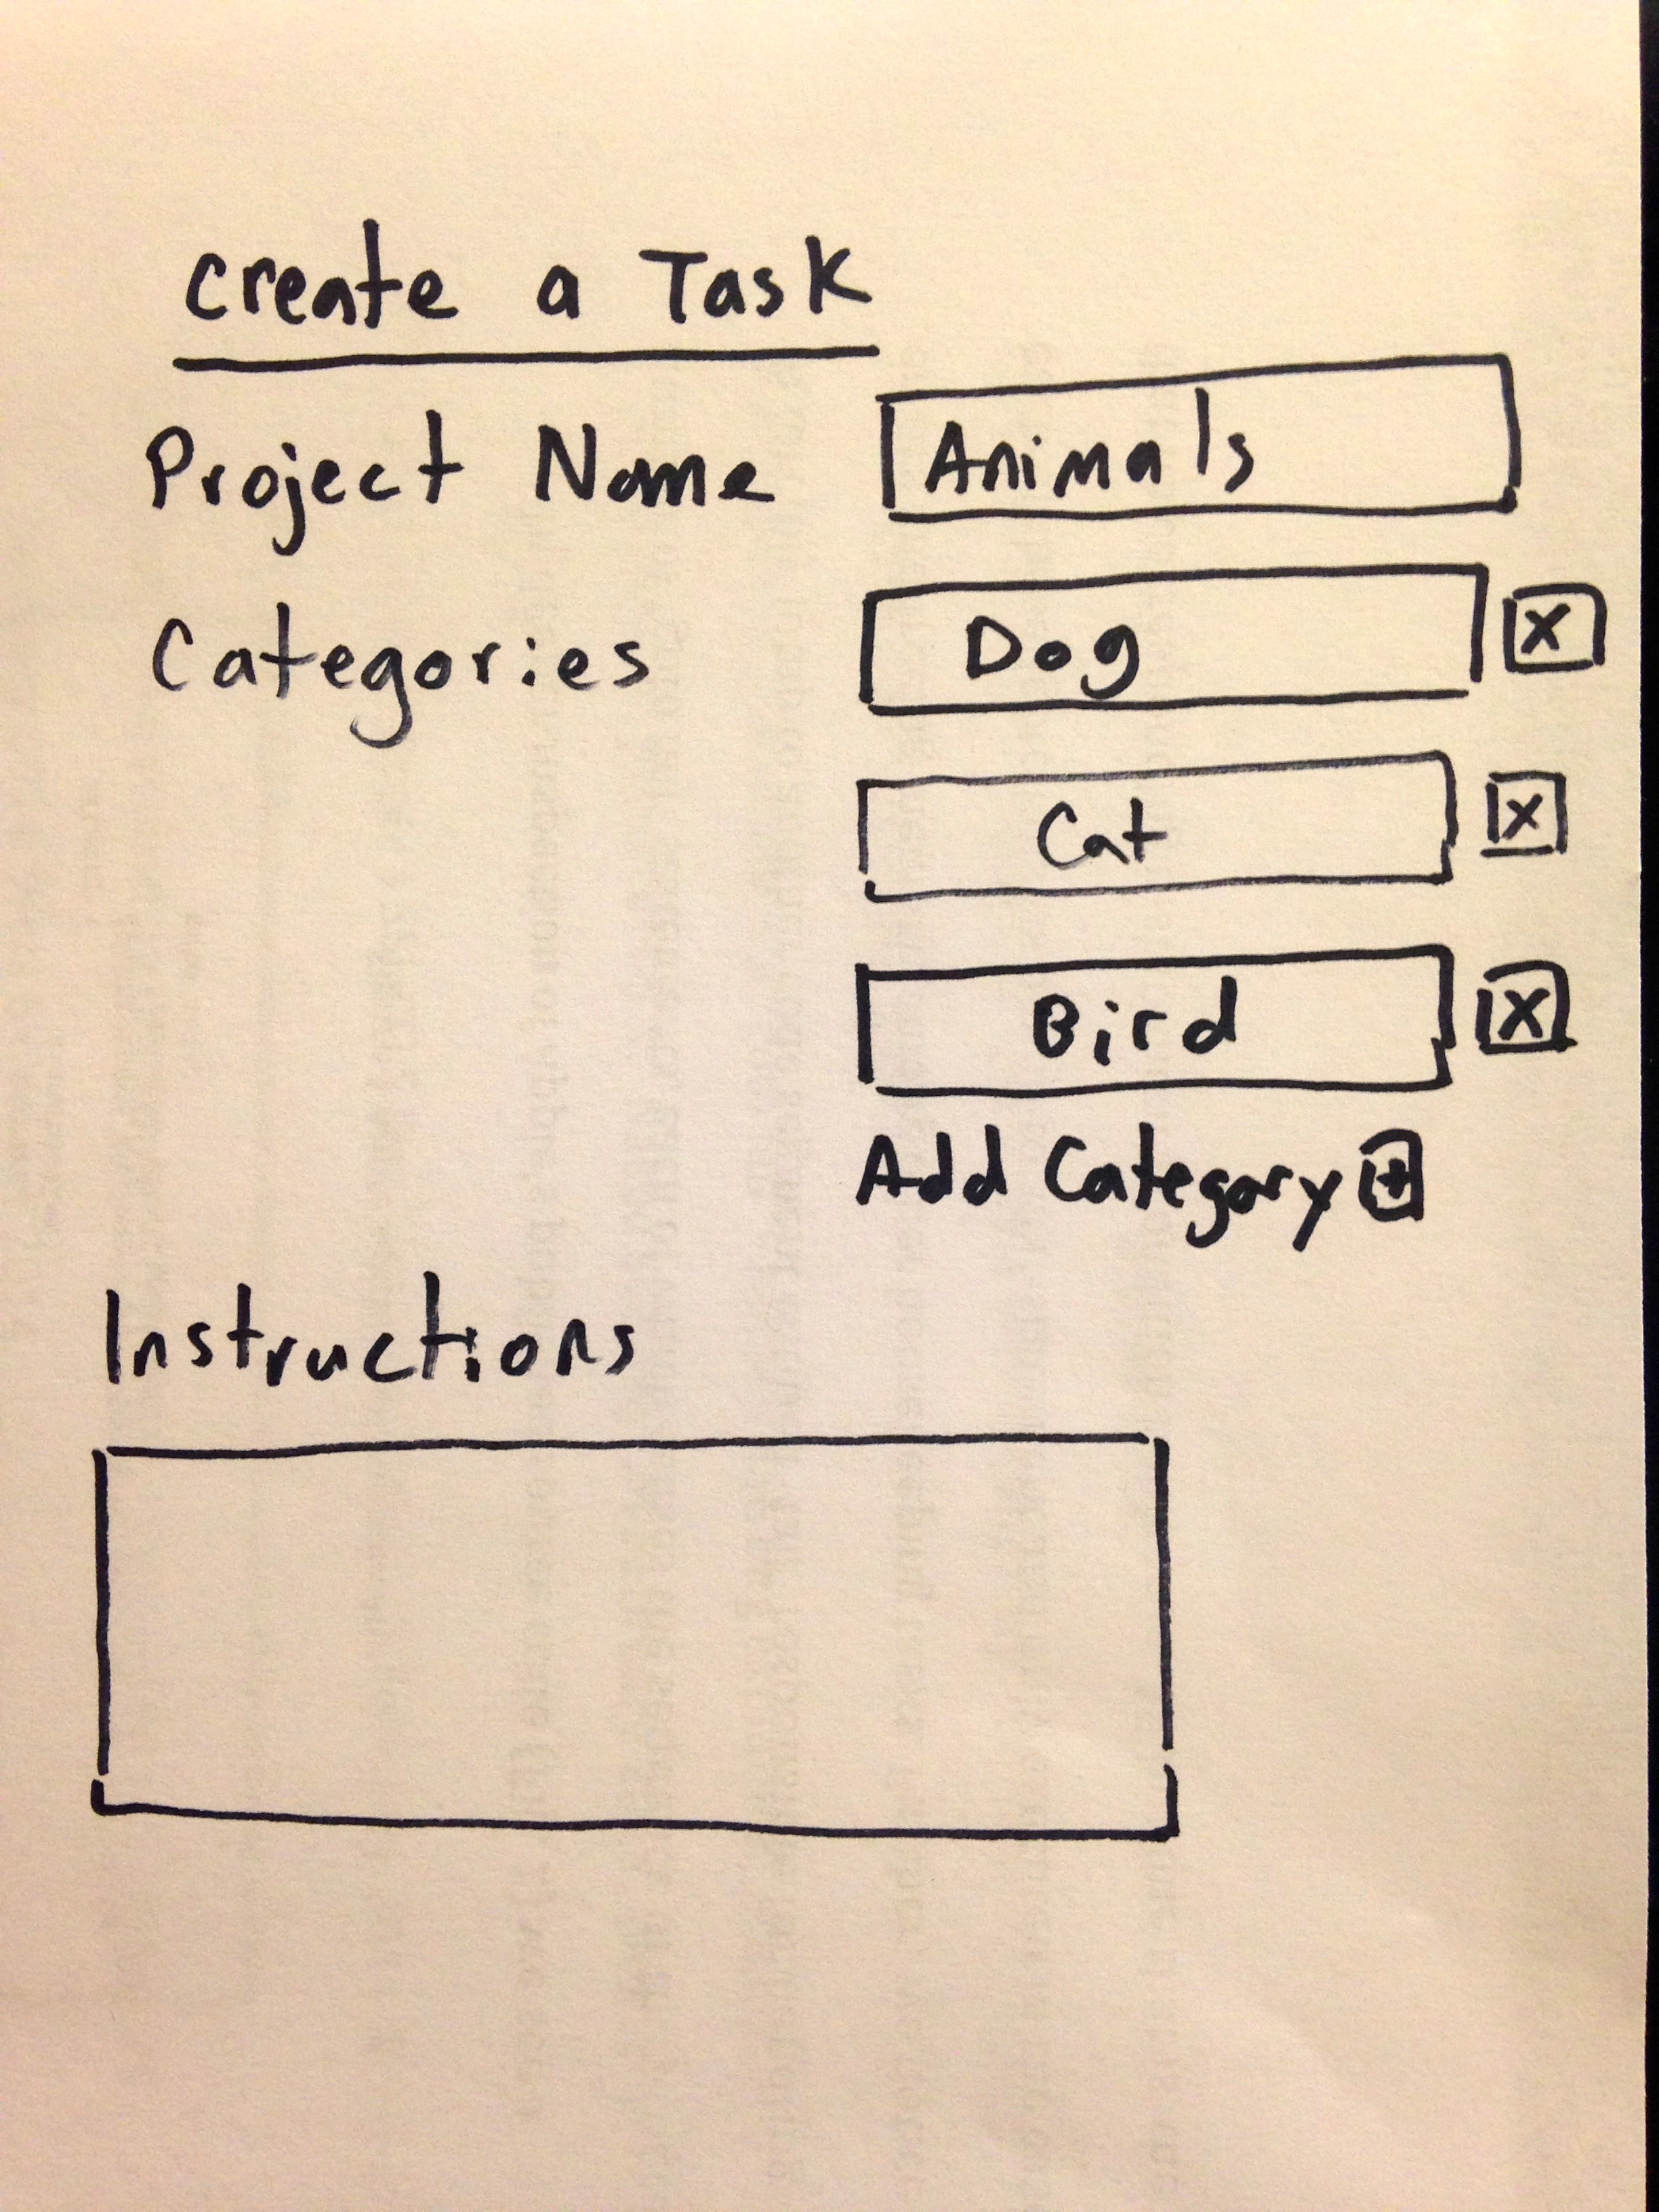 Create a Task
Project Name Animals
Categories Dog X
Cat X
Bird X
Add Category +
Instructions